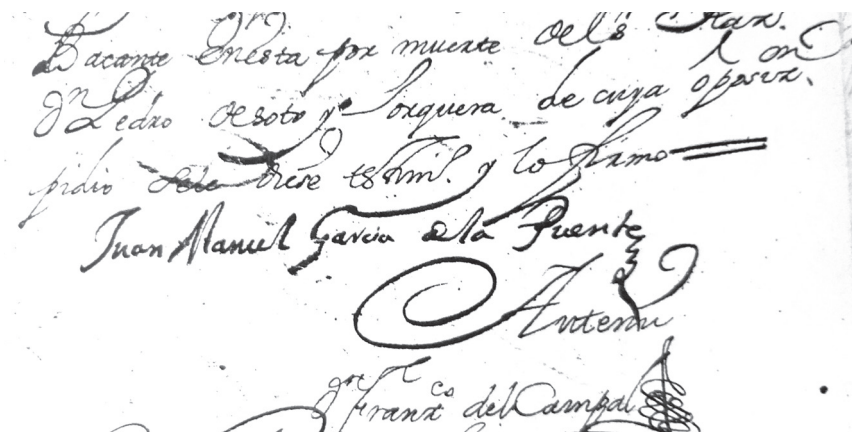 Bacante en esta por muerte del s.r
Dn Pedro de soto y Jorquera de cuya oposizn.
pidio se le diese testim.o y lo firmo
Juan Manuel Garcia de la Puente
Ante mi
Franco del Campal